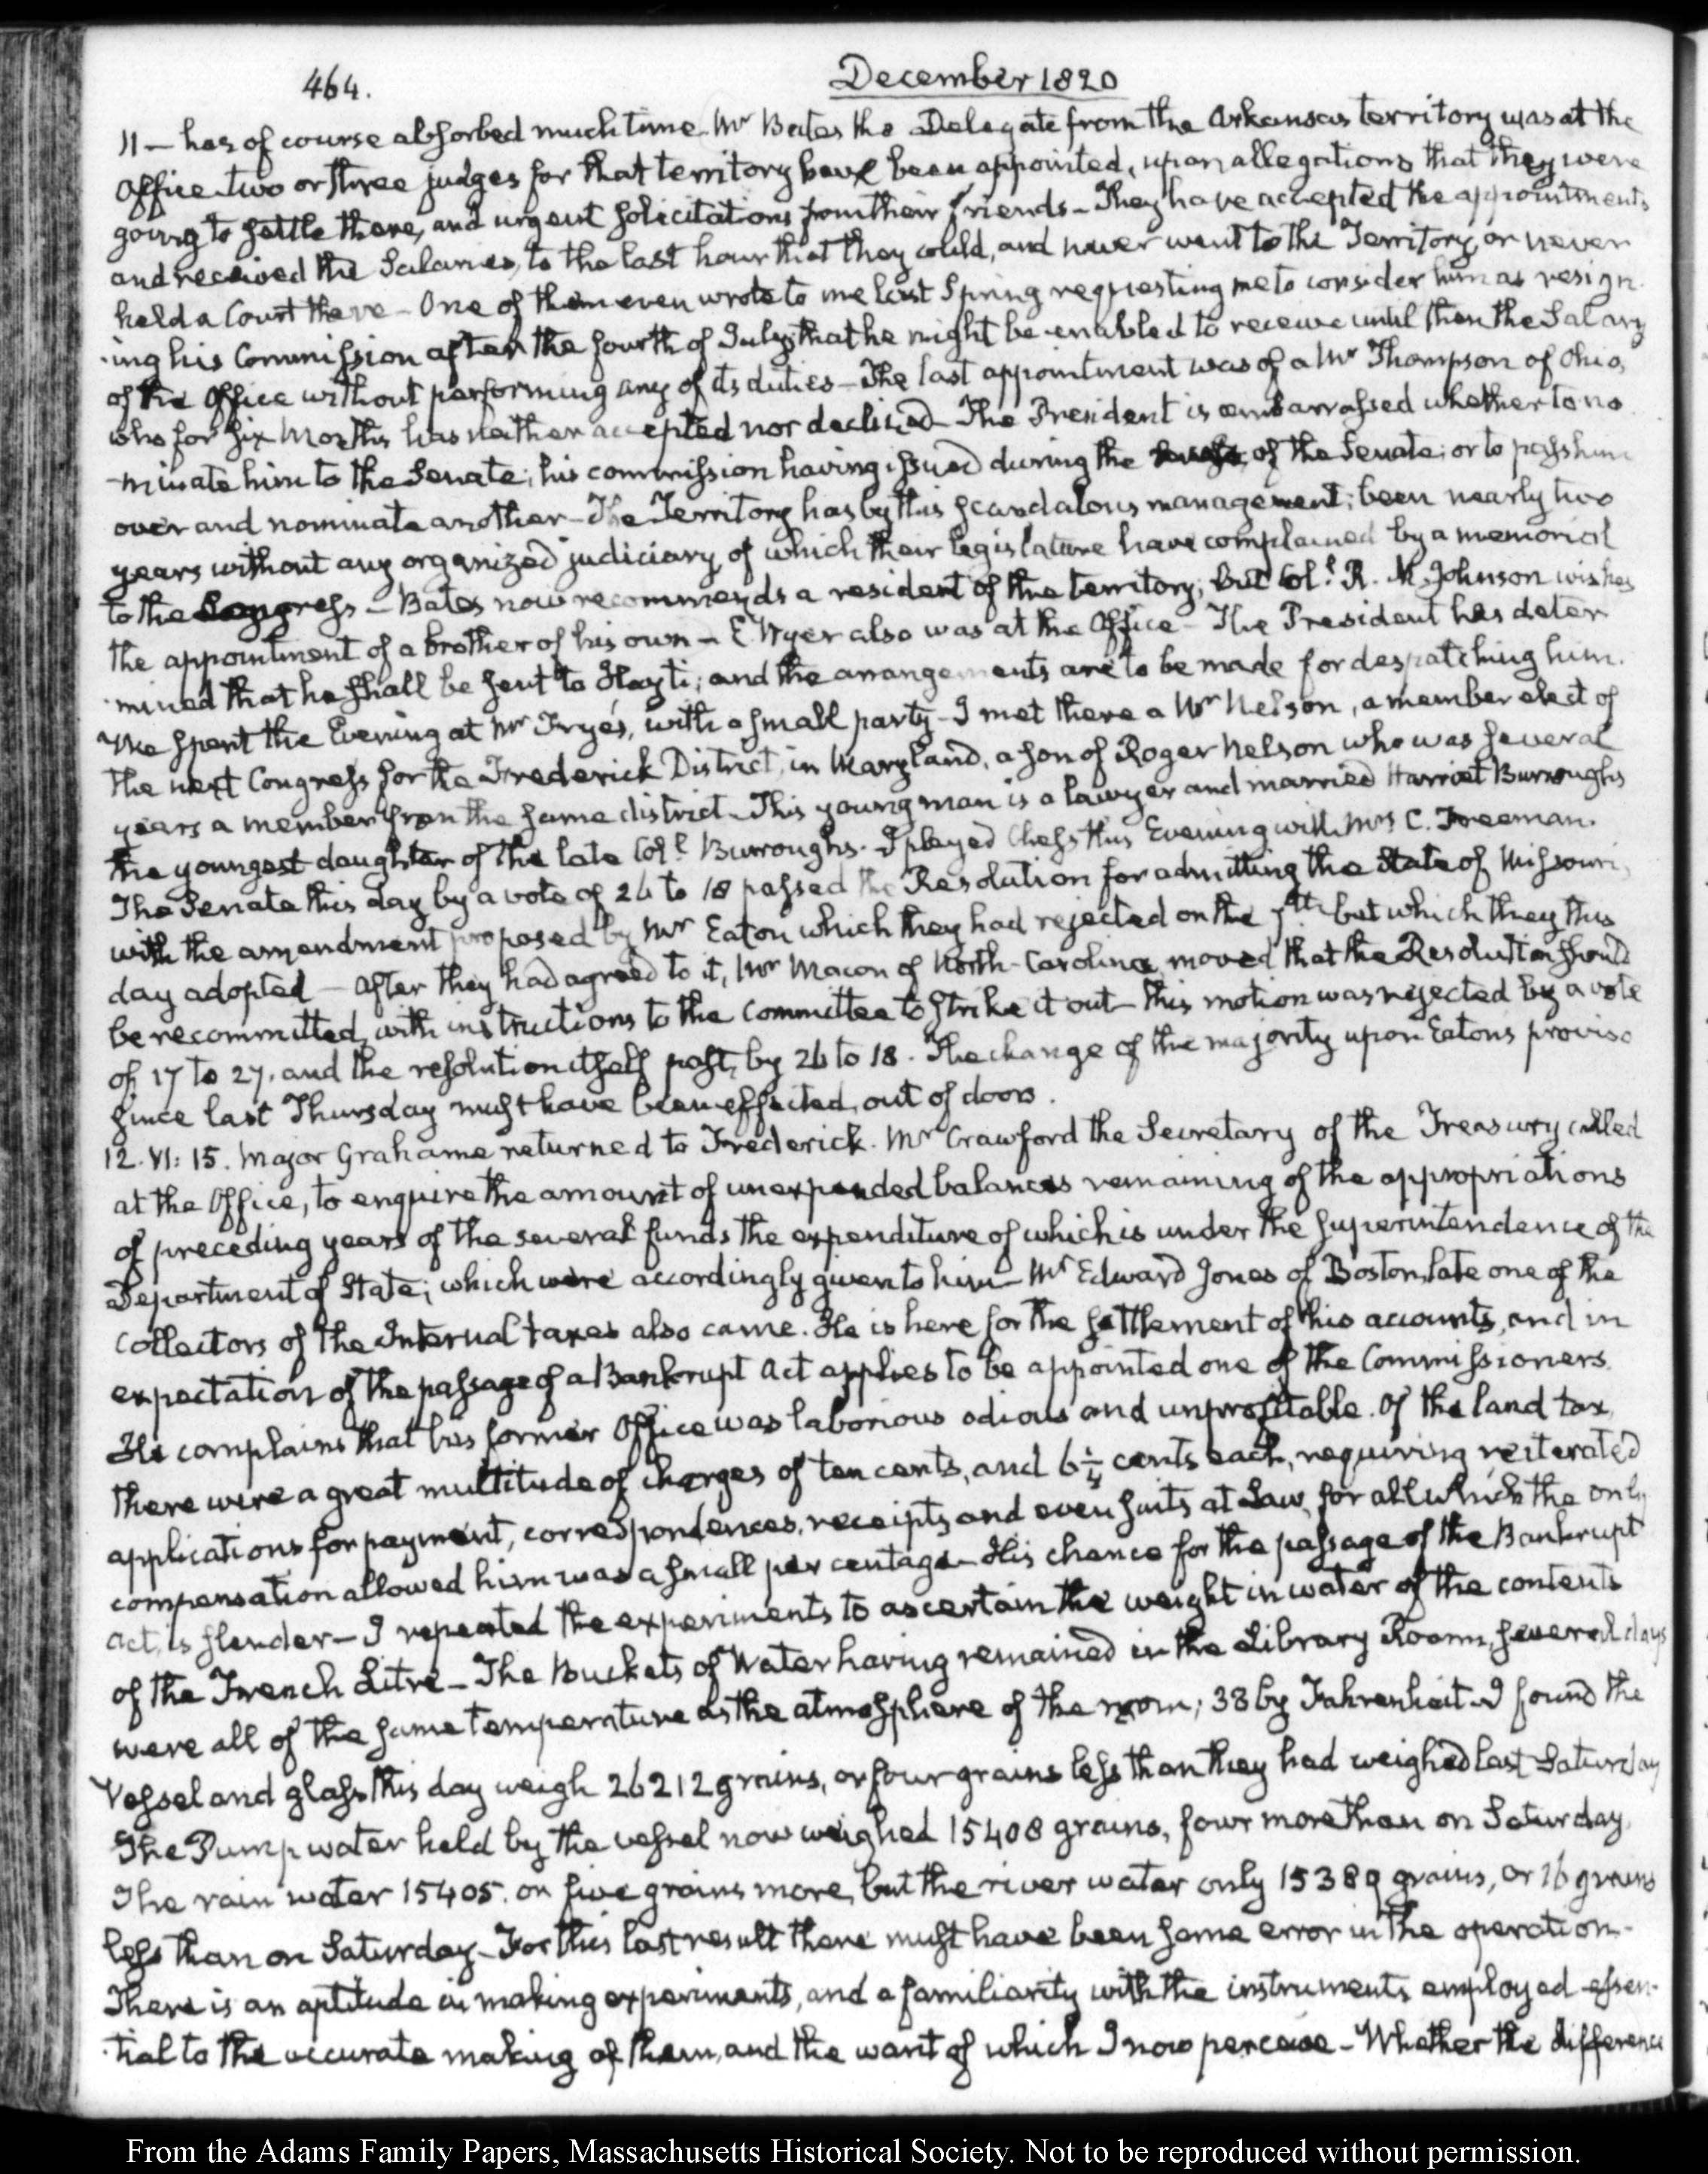 464.
December 1820
11 — has of course absorbed much time. Mr Bates the Delegate from the Arkansas territory was at the
Office two or three judges for that territory have been appointed, upon allegations that they were
going to settle there, and urgent solicitations from their friends — They have accepted the appointments
and received the Salaries, to the last hour that they could, and never went to the Territory, or never
held a Court there — One of them even wrote to me last Spring requesting me to consider him as resign-
ing his Commission after the fourth of July, that he might be enabled to receive until then the Salary
of the Office without performing any of its duties — The last appointment was of a Mr Thompson of Ohio,
who for six Months has neither accepted nor declined — The President is embarrassed whether to no
-minate him to the Senate; his commission having issued during the of the Senate; or to pass him
over and nominate another — The Territory has by this scandalous management; been nearly two
years without any organized judiciary, of which their legislature have complained by a memorial
to the Congress — Bates now recommends a resident of the territory; but Col. R. M. Johnson wishes
the appointment of a brother of his own — E Wyer also was at the Office — The President has deter
mined that he shall be sent to Hayti; and the arrangements are to be made for despatching him.
We spent the Evening at Mr Frye's, with a small party — I met there a Mr Nelson, a member elect of
the next Congress for the Frederick District, in Maryland, a son of Roger Nelson who was several
years a member from the same district — This young man is a lawyer and married Harriet Burroughs
the youngest daughter of the late Coll Burroughs. I played Chess this Evening with Mrs C. Freeman.
The Senate this day by a vote of 26 to 18 passed the Resolution for admitting the State of Missouri,
with the amendment proposed by Mr Eaton which they had rejected on the 7th but which they this
day adopted — After they had agreed to it, Mr Macon of North-Carolina, moved that the Resolution should
be recommitted, with instructions to the Committee to strike it out — This motion was rejected by a vote
of 17 to 27, and the resolution itself past, by 26 to 18. The change of the majority upon Eatons proviso
since last Thursday must have been effected, out of doors.
12. VI: 15. Major Grahame returned to Frederick. Mr Crawford the Secretary of the Treasury called
at the Office, to enquire the amount of unexpended balances remaining of the appropriations
of preceding years of the several funds the expenditure of which is under the superintendence of the
Department of State; which were accordingly given to him — Mr Edward Jones of Boston, late one of the
collectors of the Internal taxes also came. He is here for the settlement of his accounts, and in
expectation of the passage of a Bankrupt Act applies to be appointed one of the Commissioners.
He complains that his former Office was laborious odious and unprofitable. Of the land tax,
there were a great multitude of charges of ten cents, and 6 1/4 cents each, requiring reiterated
applications for payment, correspondences, receipts, and even suits at Law, for all which the only
compensation allowed him was a small per centage — His chance for the passage of the Bankrupt
act, is slender — I repeated the experiments to ascertain the weight in water of the contents
of the French Litre — The Buckets of Water having remained in the Library Room, several days
were all of the same temperature as the atmosphere of the room; 38 by Fahrenheit — I found the
Vessel and glass this day weigh 26212 grains, or four grains less than they had weighed last Saturday
The Pump water held by the vessel now weighed 15408 grains, four more than on Saturday.
The rain water 15405. or five grains more, but the river water only 15389 grains, or 16 grains
less than on Saturday — For this last result there must have been some error in the operation —
There is an aptitude in making experiments, and a familiarity with the instruments employed essen-
-tial to the accurate making of them, and the want of which I now perceive — Whether the difference
From the Adams Family Papers, Massachusetts Historical Society. Not to be reproduced without permission.